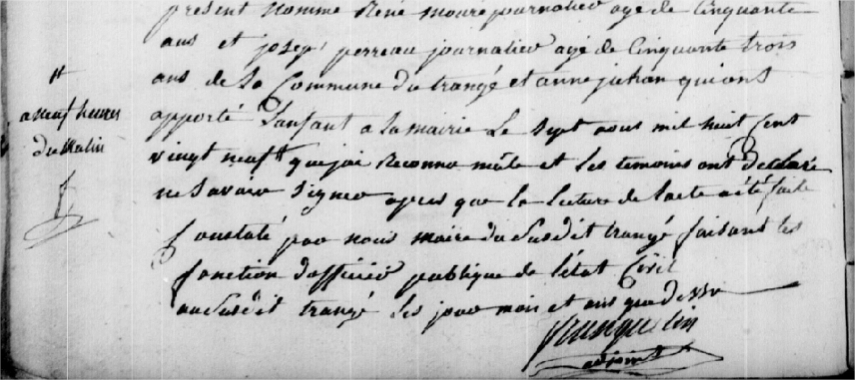 present nomme René moire journalier agé de Cinquante
ans et josep perreau journalier agé de Cinquante trois
ans de la Commune du trangé et anne juhan qui ont
apporté L'anfant a la mairie Le sept aous mil huit Cent
vingt neuf # que jai Reconnu mâle et les temoins ont Declaré
ne Savoir Signer apres que la lecture de lacte a été faite
Constaté par nous maire du Susdit trangé faisant les
fonction dofficier publique de létat Civil
au Susdit trangé les jour mois et ans que dessu
adjoint
#
a neuf heures
du Matin